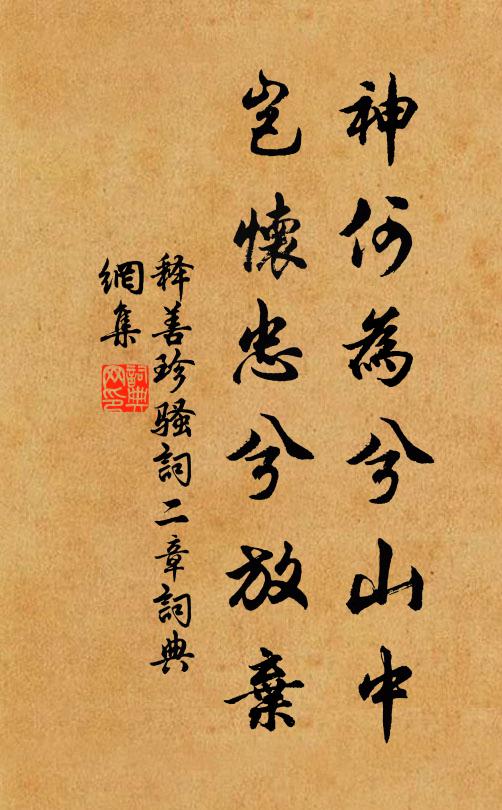 神何為兮山中
岂懷忠兮放棄
释善珍骚詞二章詞典
網集
詞典網印